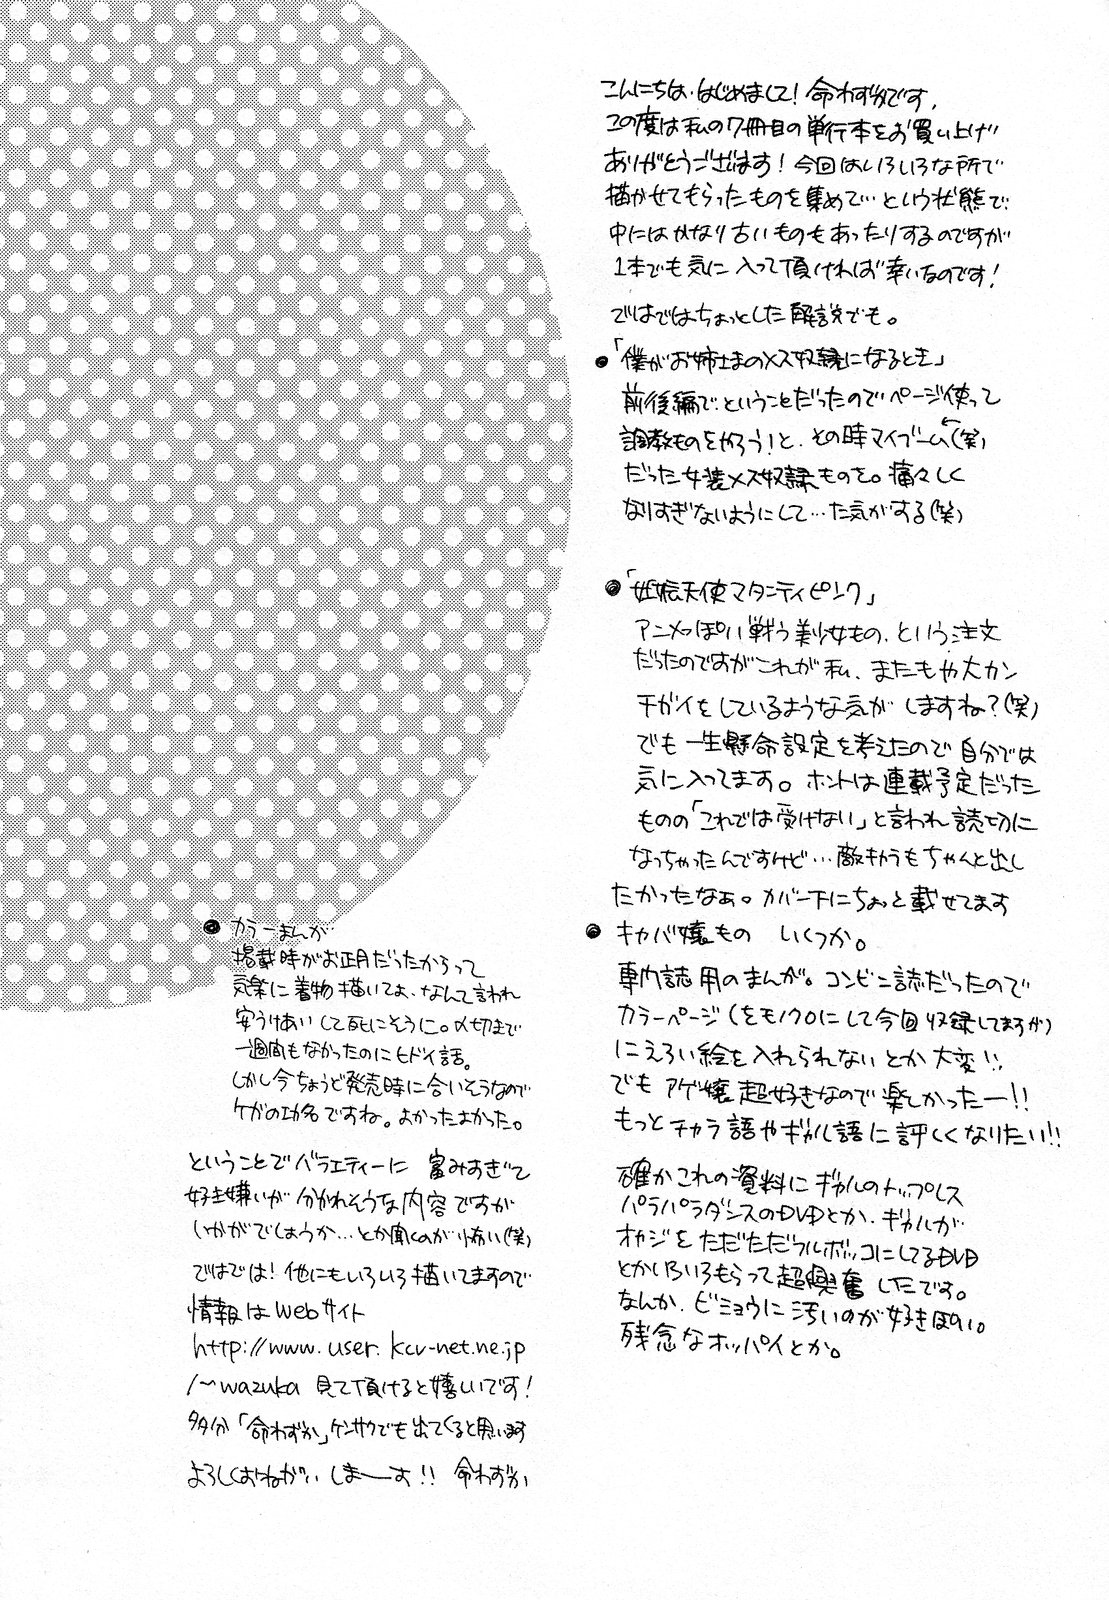 こんにちは、はじめまして!命わずかです。
この度は私の7冊目の単行本をお買い上げ
ありがとうございます!今回はいろいろな所で
描かせてもらったものを集めて…という状態で
中にはかなり古いものもあったりするのですが
1本でも気に入って頂ければ幸いなのです!
ではではちょっとした解説でも。
●「僕がお姉さまのメス奴隷になるとき」
前後編で、ということだったのでページ使って
調教ものをやろう!と、その時マイブーム(笑)
だった女装メス奴隷ものを。痛々しく
なりすぎないようにして…た気がする(笑)
●「妊娠天使マタニティピンク」
アニメっぽい戦う美少女もの、という注文
だったのですがこれが私、またもや大カン
チガイをしているような気がしますね?(笑)
でも一生懸命設定を考えたので自分では
気に入ってます。ホントは連載予定だった
ものの「これでは受けない」と言われ読切に
なっちゃったんですけど…敵キャラもちゃんと出し
たかったなぁ。カバー下にちょっと載せてます
●キャバ嬢もの いくつか。
専門誌用のまんが。コンビニ誌だったので
カラーページ(をモノクロにして今回収録してますが)
にえろい絵を入れられないとか大変!!
でもアゲ嬢超好きなので楽しかったー!!
もっとチャラ語やギャル語に詳しくなりたい!!
確かこれの資料にギャルのトップレス
パラパラダンスのDVDとか、ギャルが
オヤジをただただフルボッコにしてるDVD
とかいろいろもらって超興奮したです。
なんか、ビミョウに汚いのが好きぽい。
残念なオッパイとか。
●カラーまんが
掲載時がお正月だったからって
気楽に着物描いてよ、なんて言われ
安うけあいして死にそうに。〆切まで
一週間もなかったのにヒドイ話。
しかし今ちょうど発売時に合いそうなので
ケガの功名ですね。よかったよかった。
ということでバラエティーに富みすぎて
好き嫌いが分かれそうな内容ですが
いかがでしょうか…とか聞くのが怖い(笑)
ではでは!他にもいろいろ描いてますので
情報はWebサイト
http://www.user.kcv-net.ne.jp
/~wazuka 見て頂けると嬉しいです!
多分「命わずか」ケンサクでも出てくると思います
よろしくおねがいしまーす!! 命わずか